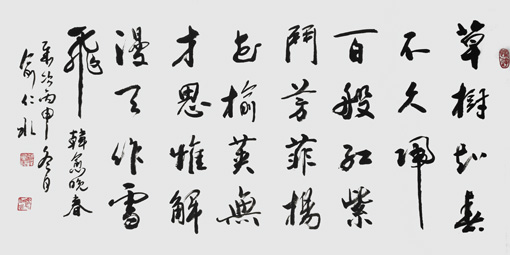 草樹知春
不久歸
百般紅紫
鬥芳菲楊
花榆莢無
才思惟解
漫天作雪
飛 韓愈晚春
歲次丙申冬月
俞仁